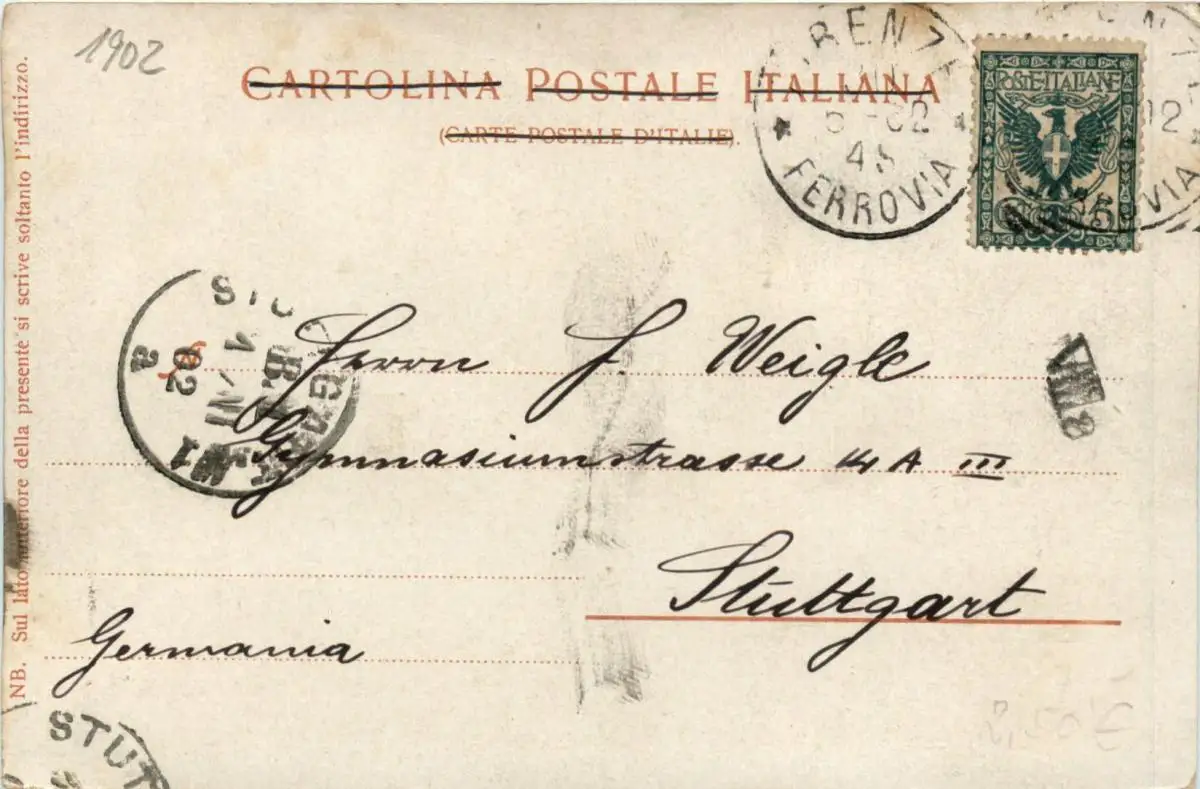 1902
CARTOLINA POSTALE ITALIANA
(CARTE POSTALE D'ITALIE).
FERROVIA
POSTE ITALIANE
5
Herrn J. Weigle
Gymnasiumstrasse 14 A III
Stuttgart
Germania
NB. Sul lato anteriore della presente si scrive soltanto l'indirizzo.
VIII 8
02
a
STUT
2,50